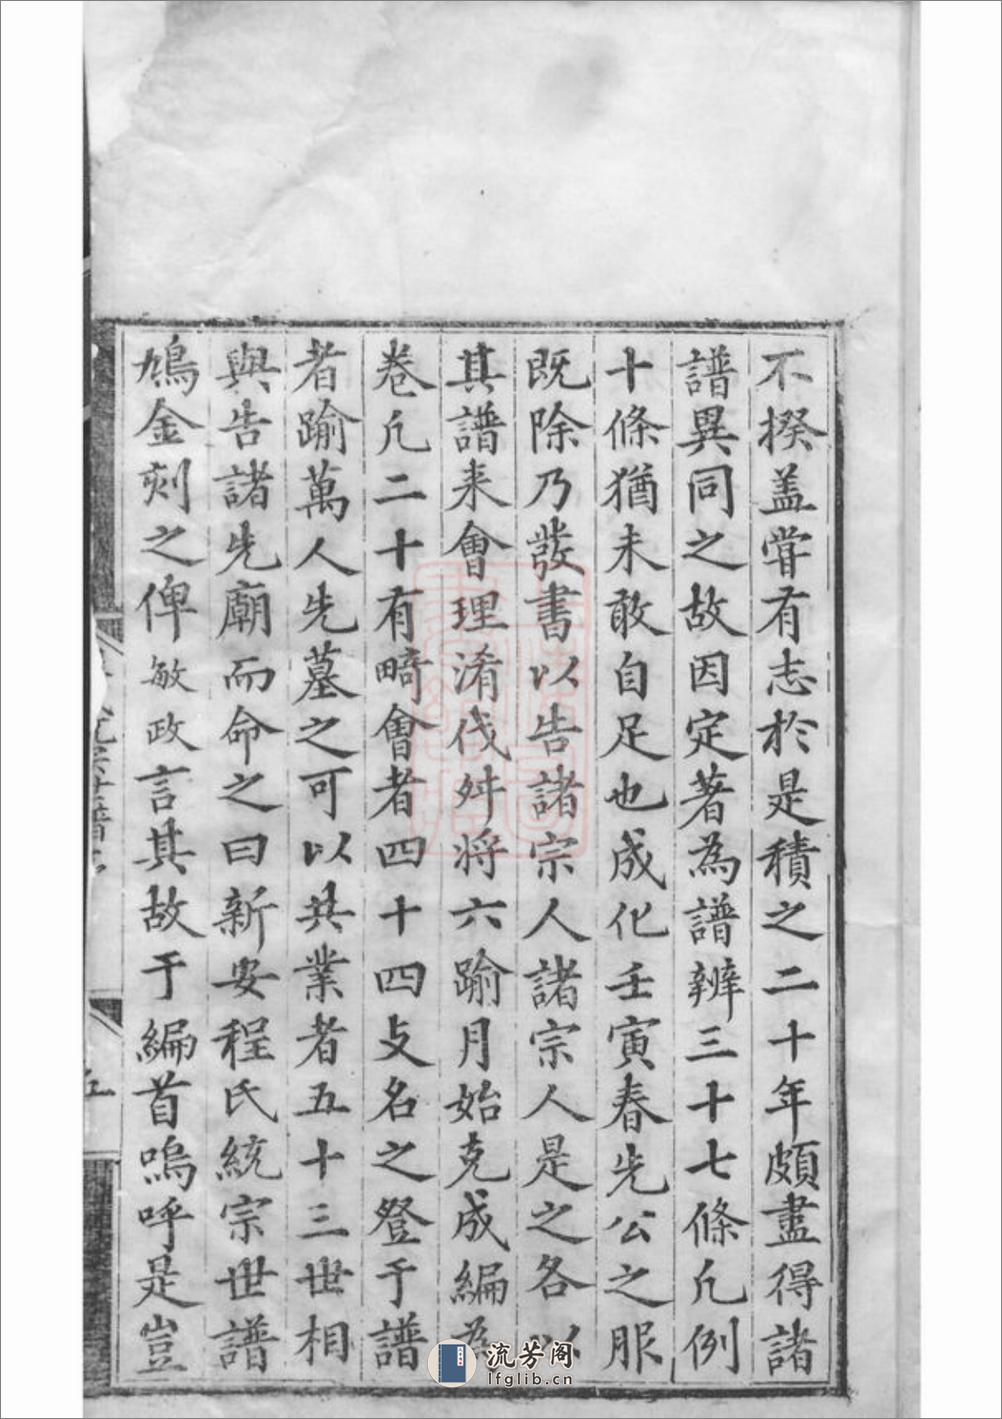 不揆盖甞有志於是積之二十年頗盡得諸
譜異同之故因定著為譜辨三十七條凢例
十條猶未敢自足也成化壬寅春先公之服
既除乃發書以告諸宗人諸宗人是之各以
其譜来會理淆伐舛将六踰月始克成編為
卷凢二十有畸會者四十四攴名之登于譜
者踰萬人先墓之可以共業者五十三世相
與告諸先廟而命之曰新安程氏統宗世譜
鳩金刻之俾敏政言其故于編首嗚呼是豈
五
流芳阁
lfglib.cn